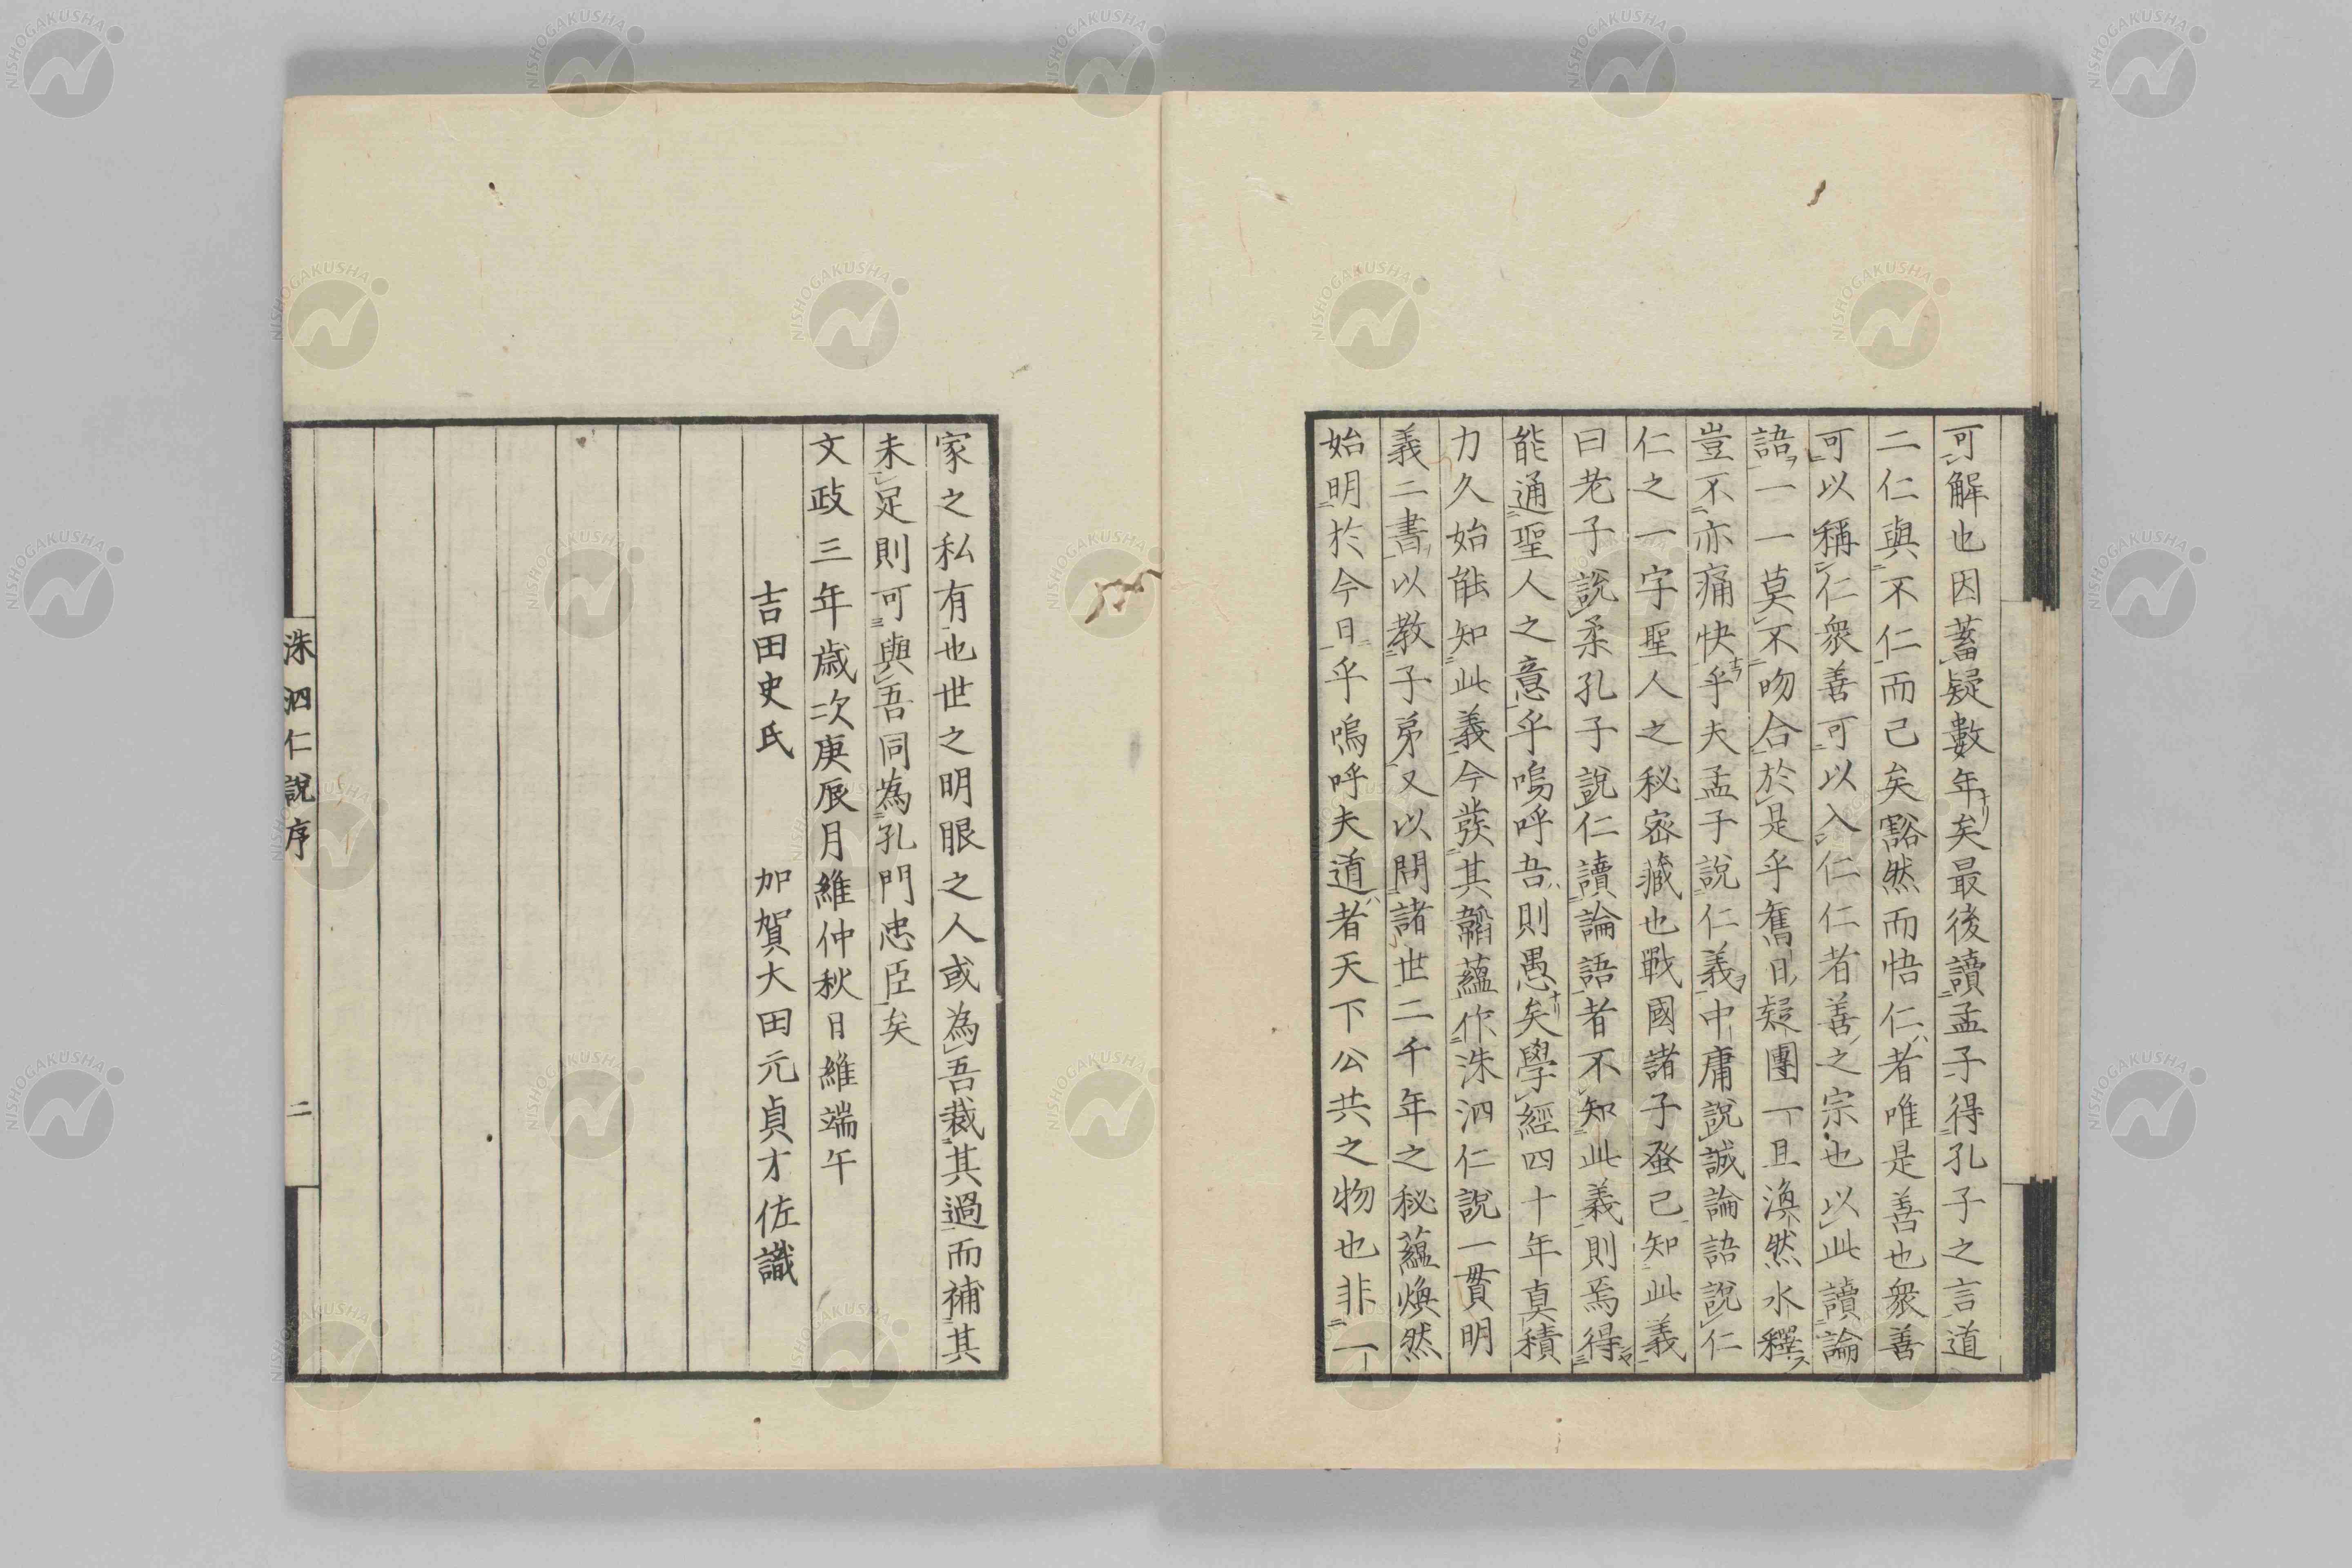 可解也因蓄疑數年矣最後讀孟子得孔子之言道
二仁與不仁而已矣豁然而悟仁者唯是善也衆善
可以稱仁衆善可以入仁仁者善之宗也以此讀論
語一一莫不吻合於是乎舊日疑團一旦渙然氷釋
豈不亦痛快乎夫孟子說仁義中庸說誠論語說仁
仁之一字聖人之秘密藏也戰國諸子蚤已知此義
曰老子說柔孔子說仁讀論語者不知此義則焉得
能通聖人之意乎嗚呼吾則愚矣學經四十年真積
力久始能知此義今發其韞蘊作洙泗仁說一貫明
義二書以教子弟又以問諸世二千年之秘蘊煥然
始明於今日乎嗚呼夫道者天下公共之物也非一
家之私有也世之明眼之人或為吾裁其過而補其
未足則可與吾同為孔門忠臣矣
文政三年歲次庚辰月維仲秋日維端午
吉田史氏　加賀大田元貞才佐識
洙泗仁說序　二
NISHOGAKUSHA